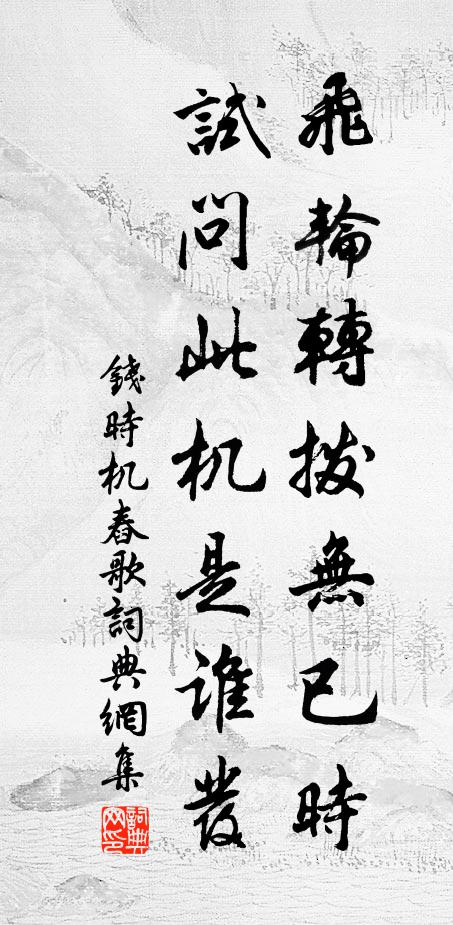 飛輪轉拨無已時
試問此机是谁發
錢時机舂歌詞典網集
詞典網印